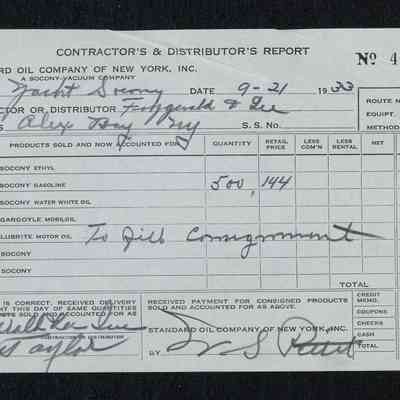 CONTRACTOR'S & DISTRIBUTOR'S REPORT
No 4
RD OIL COMPANY OF NEW YORK, INC.
A SOCONY-VACUUM COMPANY
Yacht Socony DATE 9-21 1933
CTOR OR DISTRIBUTOR Fitzgerald & Lee
S Alex Bay NY S.S. No.
ROUTE N
EQUIPT.
METHOD
PRODUCTS SOLD AND NOW ACCOUNTED FOR QUANTITY RETAIL PRICE LESS COM'N LESS RENTAL NET
SOCONY ETHYL
SOCONY GASOLINE 500 144
SOCONY WATER WHITE OIL
GARGOYLE MOBILOIL
LUBRITE MOTOR OIL To Fill Consignment
SOCONY
SOCONY
TOTAL
IS CORRECT. RECEIVED DELIVERY
AT THIS DAY OF SAME QUANTITIES
OUNTED FOR AS ABOVE.
Taylor
CONTRACTOR OR DISTRIBUTOR
RECEIVED PAYMENT FOR CONSIGNED PRODUCTS
SOLD AND ACCOUNTED FOR AS ABOVE.
STANDARD OIL COMPANY OF NEW YORK, INC.
BY
CREDIT MEMO
COUPONS
CHECKS
CASH
TOTAL